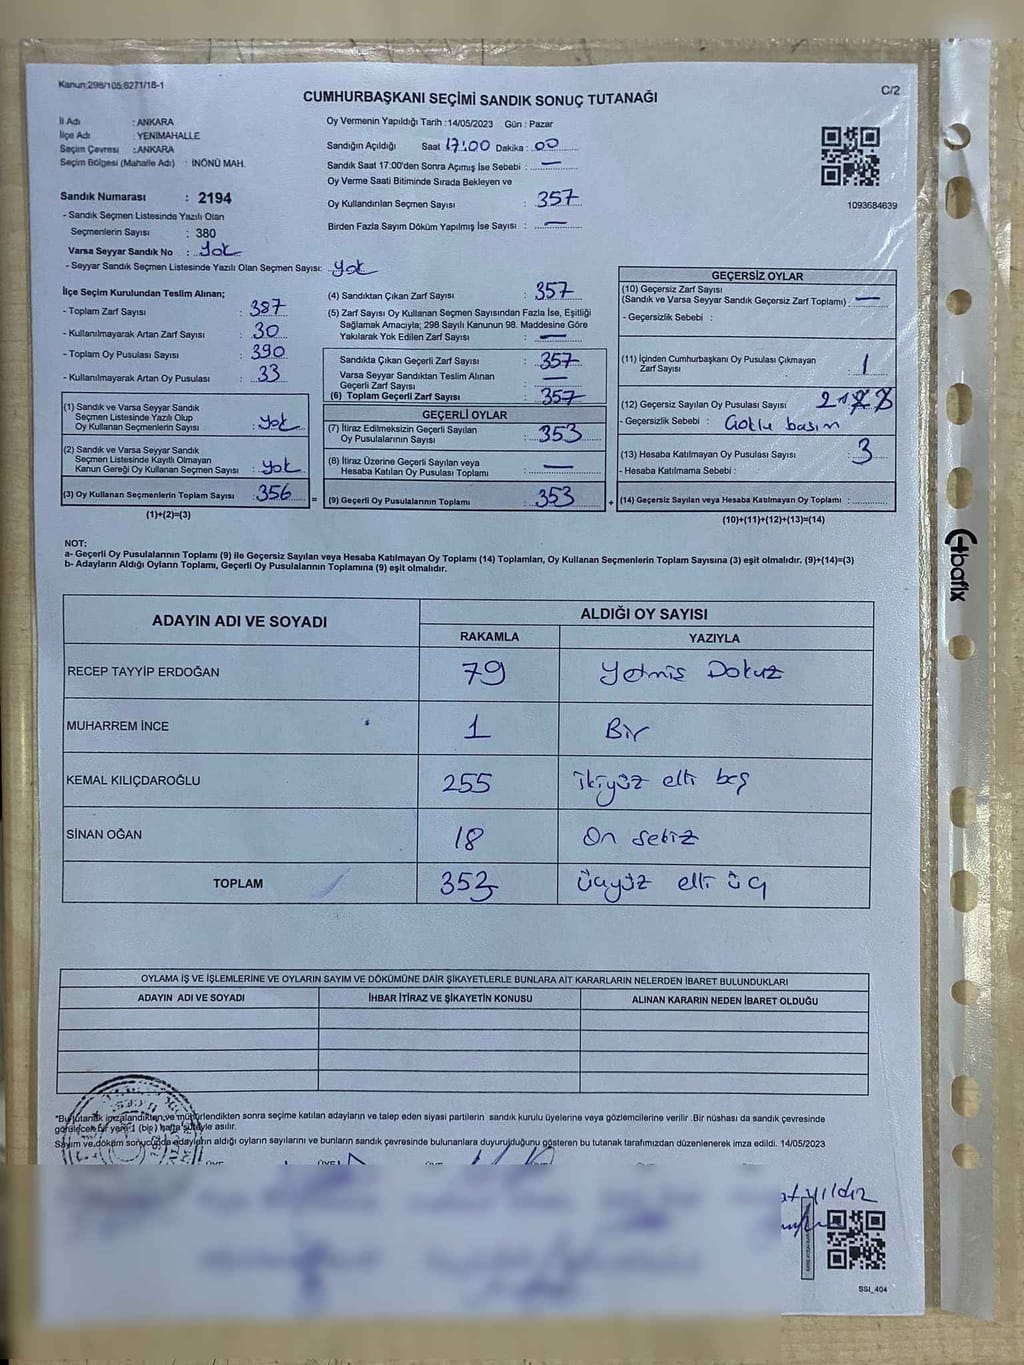 Kanun;298/105;6271/18-1
C/2
CUMHURBAŞKANI SEÇİMİ SANDIK SONUÇ TUTANAĞI
İl Adı : ANKARA
İlçe Adı : YENİMAHALLE
Seçim Çevresi : ANKARA
Seçim Bölgesi (Mahalle Adı) : İNÖNÜ MAH.
Sandık Numarası : 2194
- Sandık Seçmen Listesinde Yazılı Olan
Seçmenlerin Sayısı : 380
Varsa Seyyar Sandık No : Yok
- Seyyar Sandık Seçmen Listesinde Yazılı Olan Seçmen Sayısı: Yok
Oy Vermenin Yapıldığı Tarih : 14/05/2023 Gün : Pazar
Sandığın Açıldığı Saat 17:00 Dakika : 00
Sandık Saat 17:00'den Sonra Açımış İse Sebebi : —
Oy Verme Saati Bitiminde Sırada Bekleyen ve
Oy Kullandırılan Seçmen Sayısı : 357
Birden Fazla Sayım Döküm Yapılmış İse Sayısı : —
1093684639
İlçe Seçim Kurulundan Teslim Alınan;
- Toplam Zarf Sayısı : 387
- Kullanılmayarak Artan Zarf Sayısı : 30
- Toplam Oy Pusulası Sayısı : 390
- Kullanılmayarak Artan Oy Pusulası : 33
(1) Sandık ve Varsa Seyyar Sandık
Seçmen Listesinde Yazılı Olup
Oy Kullanan Seçmenlerin Sayısı : Yok
(2) Sandık ve Varsa Seyyar Sandık
Seçmen Listesinde Kayıtlı Olmayan
Kanun Gereği Oy Kullanan Seçmen Sayısı : Yok
(3) Oy Kullanan Seçmenlerin Toplam Sayısı : 356
(1)+(2)=(3)
(4) Sandıktan Çıkan Zarf Sayısı : 357
(5) Zarf Sayısı Oy Kullanan Seçmen Sayısından Fazla İse, Eşitliği
Sağlamak Amacıyla; 298 Sayılı Kanunun 98. Maddesine Göre
Yakılarak Yok Edilen Zarf Sayısı : —
Sandıkta Çıkan Geçerli Zarf Sayısı : 357
Varsa Seyyar Sandıktan Teslim Alınan
Geçerli Zarf Sayısı : —
(6) Toplam Geçerli Zarf Sayısı : 357
GEÇERLİ OYLAR
(7) İtiraz Edilmeksizin Geçerli Sayılan
Oy Pusulalarının Sayısı : 353
(8) İtiraz Üzerine Geçerli Sayılan veya
Hesaba Katılan Oy Pusulası Toplamı : —
= (9) Geçerli Oy Pusulalarının Toplamı : 353
GEÇERSİZ OYLAR
(10) Geçersiz Zarf Sayısı
(Sandık ve Varsa Seyyar Sandık Geçersiz Zarf Toplamı) : —
- Geçersizlik Sebebi :
(11) İçinden Cumhurbaşkanı Oy Pusulası Çıkmayan
Zarf Sayısı : 1
(12) Geçersiz Sayılan Oy Pusulası Sayısı :
- Geçersizlik Sebebi : Çoklu basım
(13) Hesaba Katılmayan Oy Pusulası Sayısı : 3
- Hesaba Katılmama Sebebi :
+ (14) Geçersiz Sayılan veya Hesaba Katılmayan Oy Toplamı :
(10)+(11)+(12)+(13)=(14)
NOT:
a- Geçerli Oy Pusulalarının Toplamı (9) ile Geçersiz Sayılan veya Hesaba Katılmayan Oy Toplamı (14) Toplamları, Oy Kullanan Seçmenlerin Toplam Sayısına (3) eşit olmalıdır. (9)+(14)=(3)
b- Adayların Aldığı Oyların Toplamı, Geçerli Oy Pusulalarının Toplamına (9) eşit olmalıdır.
ADAYIN ADI VE SOYADI
ALDIĞI OY SAYISI
RAKAMLA YAZIYLA
RECEP TAYYİP ERDOĞAN 79 Yetmiş Dokuz
MUHARREM İNCE 1 Bir
KEMAL KILIÇDAROĞLU 255 ikiyüz elli beş
SİNAN OĞAN 18 On sekiz
TOPLAM 353 üçyüz elli üç
OYLAMA İŞ VE İŞLEMLERİNE VE OYLARIN SAYIM VE DÖKÜMÜNE DAİR ŞİKAYETLERLE BUNLARA AİT KARARLARIN NELERDEN İBARET BULUNDUKLARI
ADAYIN ADI VE SOYADI İHBAR İTİRAZ VE ŞİKAYETİN KONUSU ALINAN KARARIN NEDEN İBARET OLDUĞU
*Bu tutanak imzalandıktan ve mühürlendikten sonra seçime katılan adayların ve talep eden siyasi partilerin sandık kurulu üyelerine veya gözlemcilerine verilir .Bir nüshası da sandık çevresinde
görülecek bir yere 1 (bir) hafta süreyle asılır.
Sayım ve döküm sonucunda adayların aldığı oyların sayılarını ve bunların sandık çevresinde bulunanlara duyurulduğunu gösteren bu tutanak tarafımızdan düzenlenerek imza edildi. 14/05/2023
ÜYE
yıldız
SSI_404
Abafix